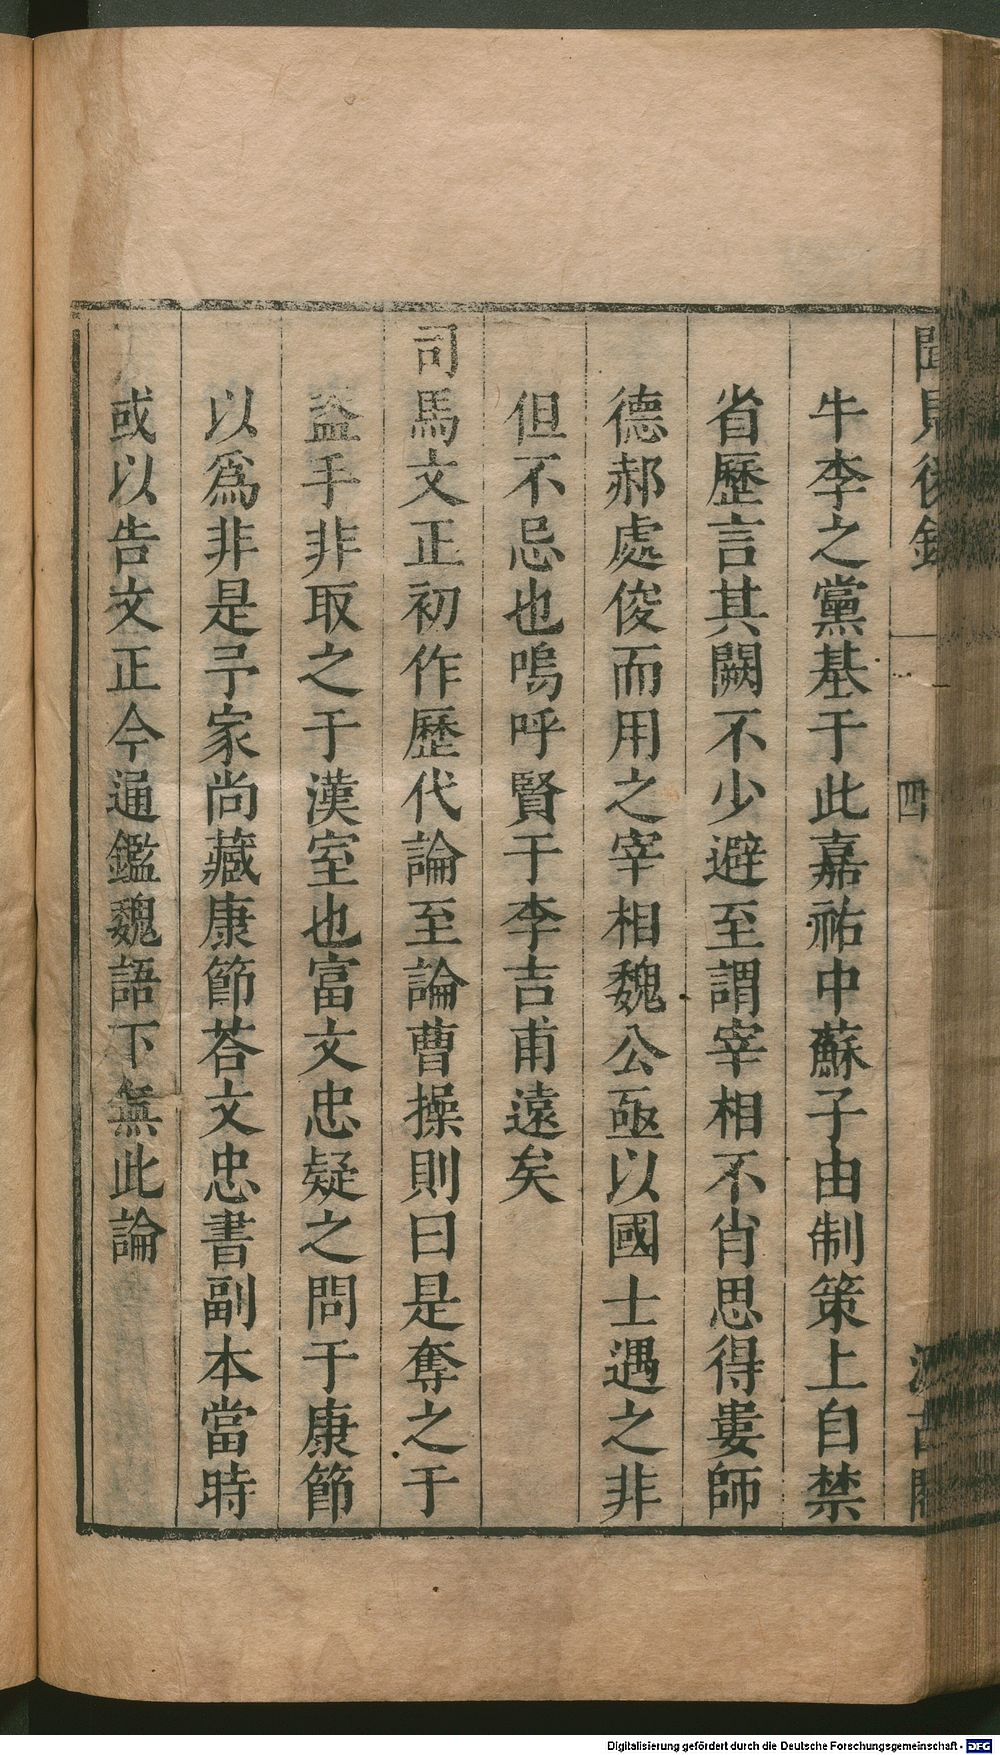 聞見後錄
四
汲古閣
牛李之黨基于此嘉祐中蘇子由制策上自禁
省歷言其闕不少避至謂宰相不肖思得婁師
德郝處俊而用之宰相魏公亟以國士遇之非
但不忌也嗚呼賢于李吉甫遠矣
司馬文正初作歷代論至論曹操則曰是奪之于
盗手非取之于漢室也富文忠疑之問于康節
以爲非是予家尚藏康節荅文忠書副本當時
或以告文正今通鑑魏語下無此論
Digitalisierung gefördert durch die Deutsche Forschungsgemeinschaft - DFG